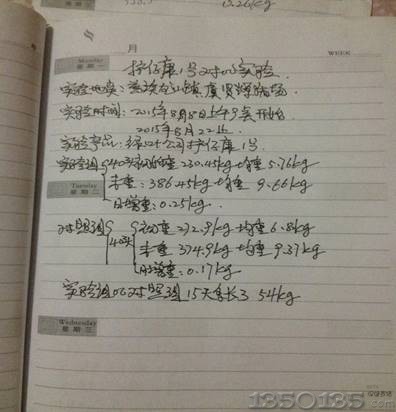 月
WEEK
Monday
星期一
仔康1号对比实验
实验地点：
实验时间：2015年8月8日上午9点开始
2015年8月22止
实验产品：公司仔康1号
实验组 40头 初重 230.45kg 均重 5.76kg
末重：386.45kg 均重 9.66kg
Tuesday
星期二
日增重：0.25kg.
对照组 40头 初重 272.9kg 均重 6.8kg
末重 374.9kg 均重 9.37kg
日增重：0.17kg
实验组比对照组 15天多长了 54kg
Wednesday
星期三
1350135
.com